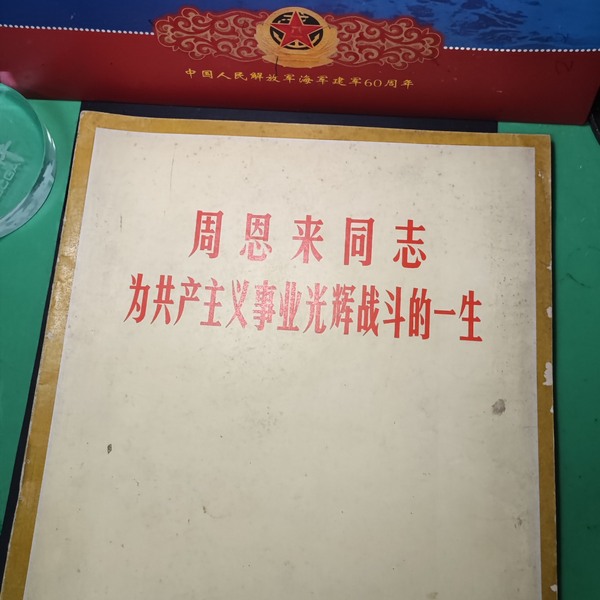 中国人民解放军海军建军60周年
周恩来同志
为共产主义事业光辉战斗的一生